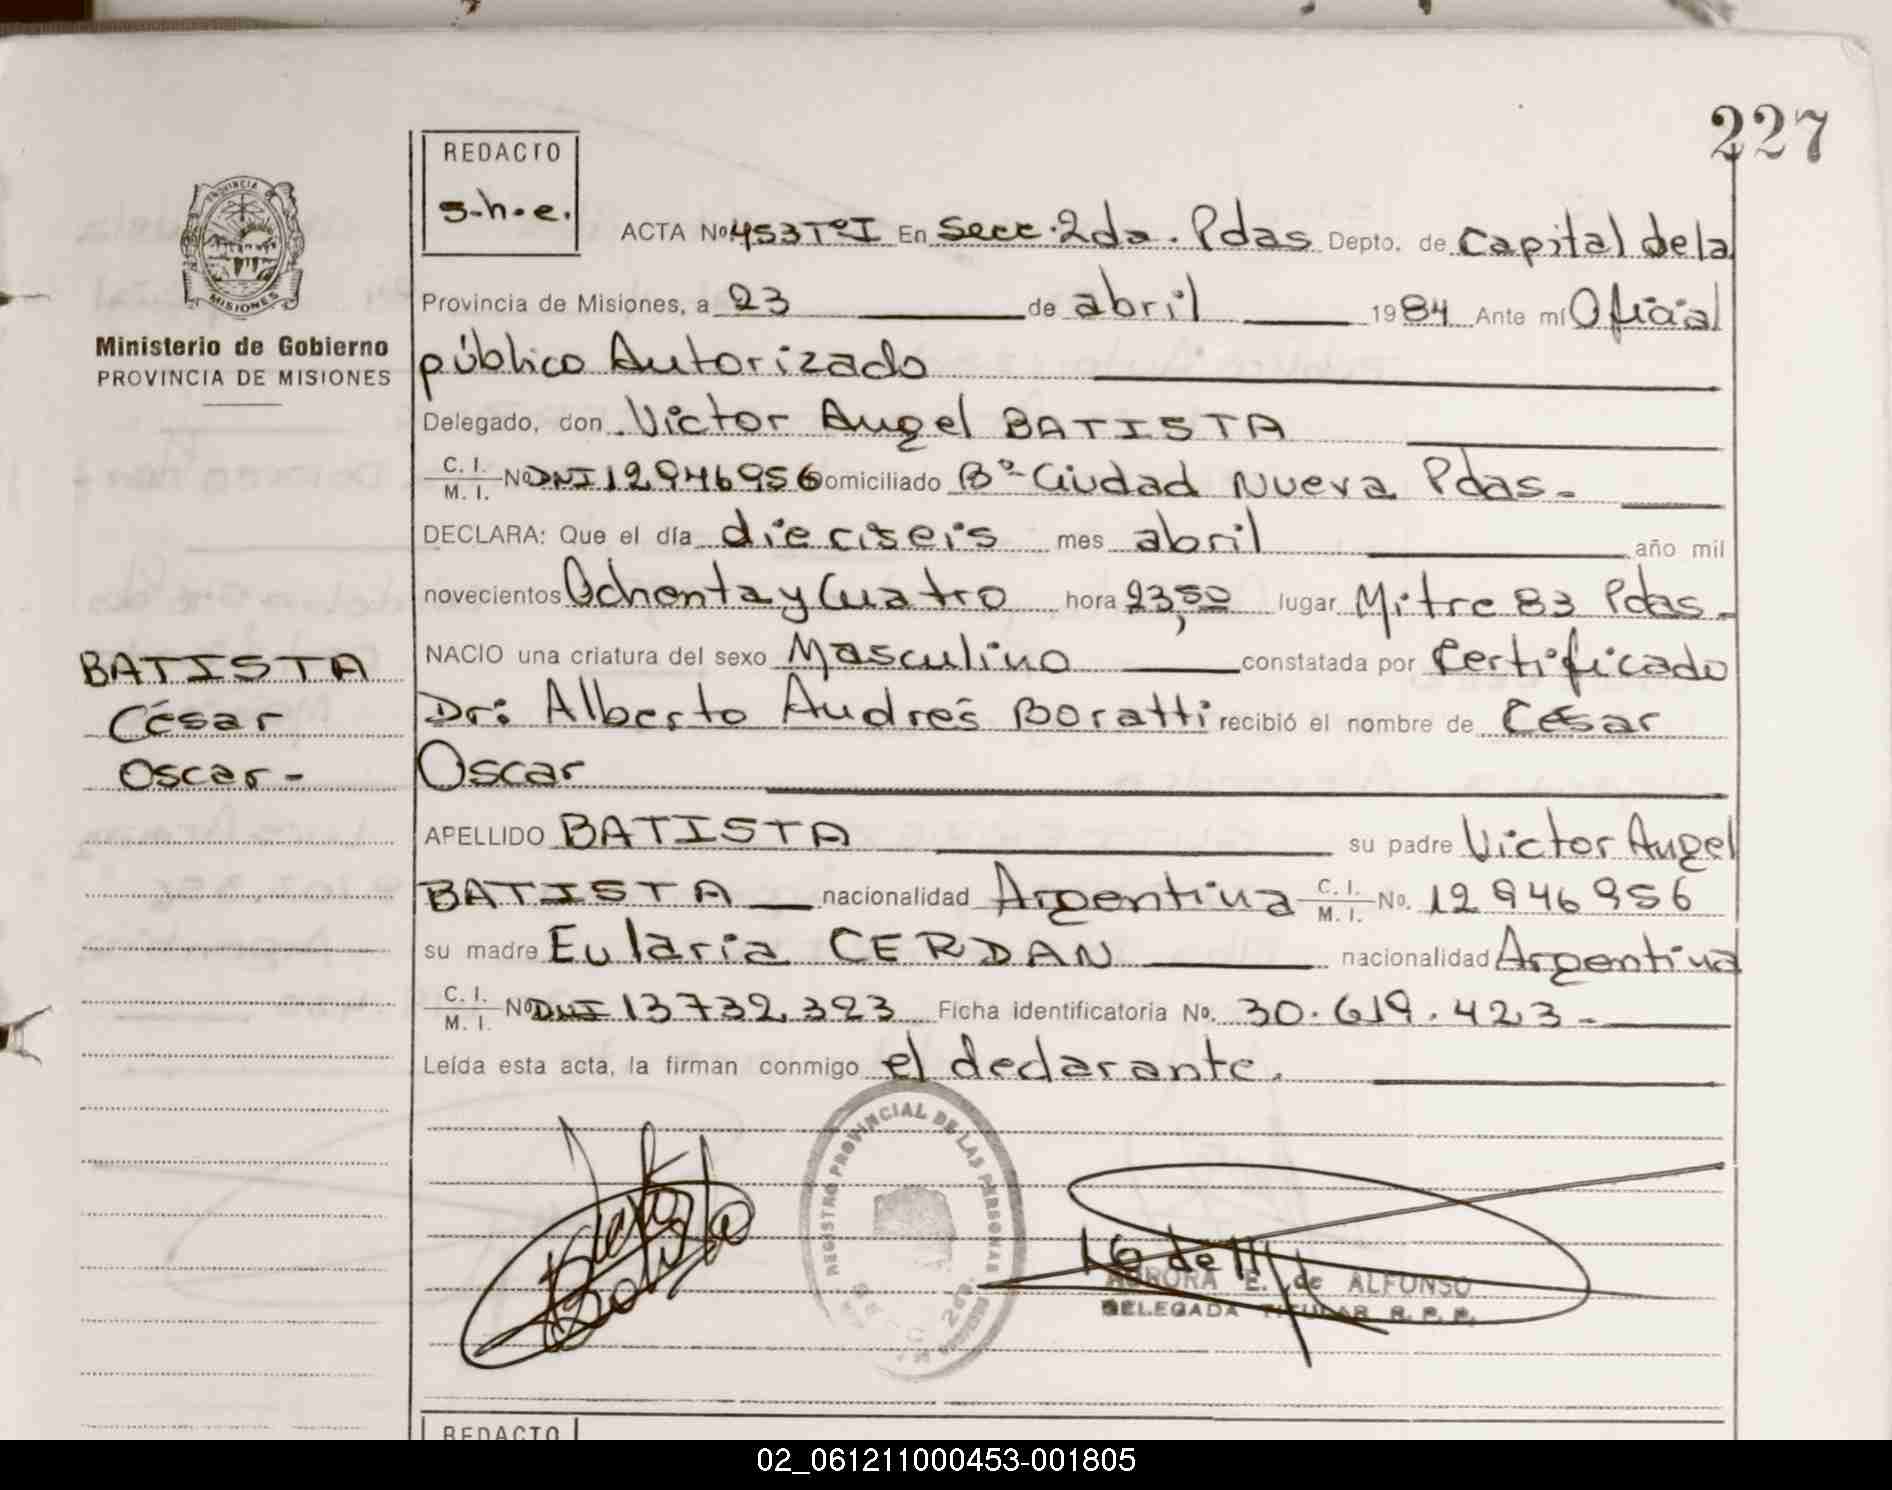 227
REDACTO
s-h-e.
PROVINCIA
MISIONES
Ministerio de Gobierno
PROVINCIA DE MISIONES
ACTA No 453 Tº I En Secc. 2da. Pdas Depto. de Capital de la
Provincia de Misiones, a 23 de abril 1984 Ante mí Oficial
público Autorizado
Delegado, don Victor Angel BATISTA
C. I. M. I. No DNI 12946956 Domiciliado Bº Ciudad Nueva Pdas-
DECLARA: Que el día dieciseis mes abril año mil
novecientos Ochenta y Cuatro hora 23,50 lugar Mitre 83 Pdas-
NACIO una criatura del sexo Masculino constatada por Certificado
Dr: Alberto Andrés Boratti recibió el nombre de César
Oscar
BATISTA
César
Oscar-
APELLIDO BATISTA su padre Victor Angel
BATISTA nacionalidad Argentina C. I. M. I. No. 12946956
su madre Eularia CERDAN nacionalidad Argentina
C. I. M. I. No DNI 13732.323 Ficha identificatoria No. 30.619.423-
Leída esta acta, la firman conmigo el declarante.
REGISTRO PROVINCIAL DE LAS PERSONAS
AURORA E. de ALFONSO
DELEGADA TITULAR R. P. P.
REDACTO
02_061211000453-001805